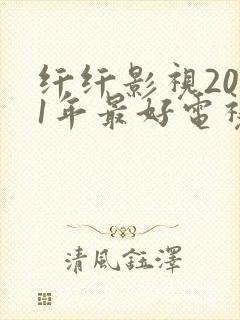 纤纤影視20
1年最好電視
清風鈺澤